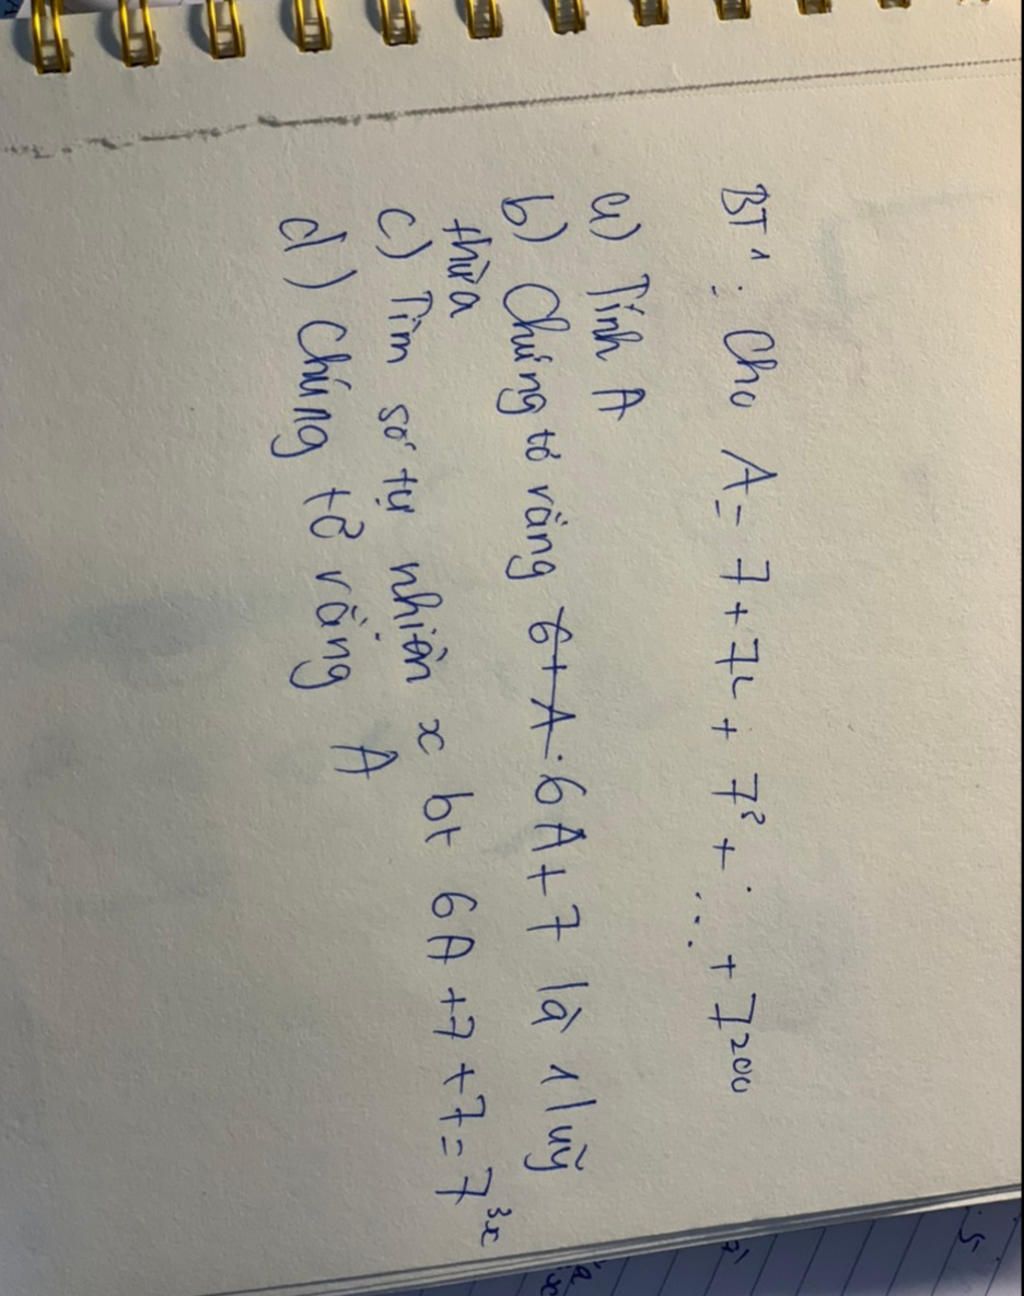 BT1: Cho A = 7 + 7² + 7³ + ... + 7²⁰⁰
a) Tính A
b) Chứng tỏ rằng 6+A. 6A+7 là 1 luỹ
thừa
c) Tìm số tự nhiên x bt 6A +7 +7 = 7³ˣ
d) Chứng tỏ rằng A